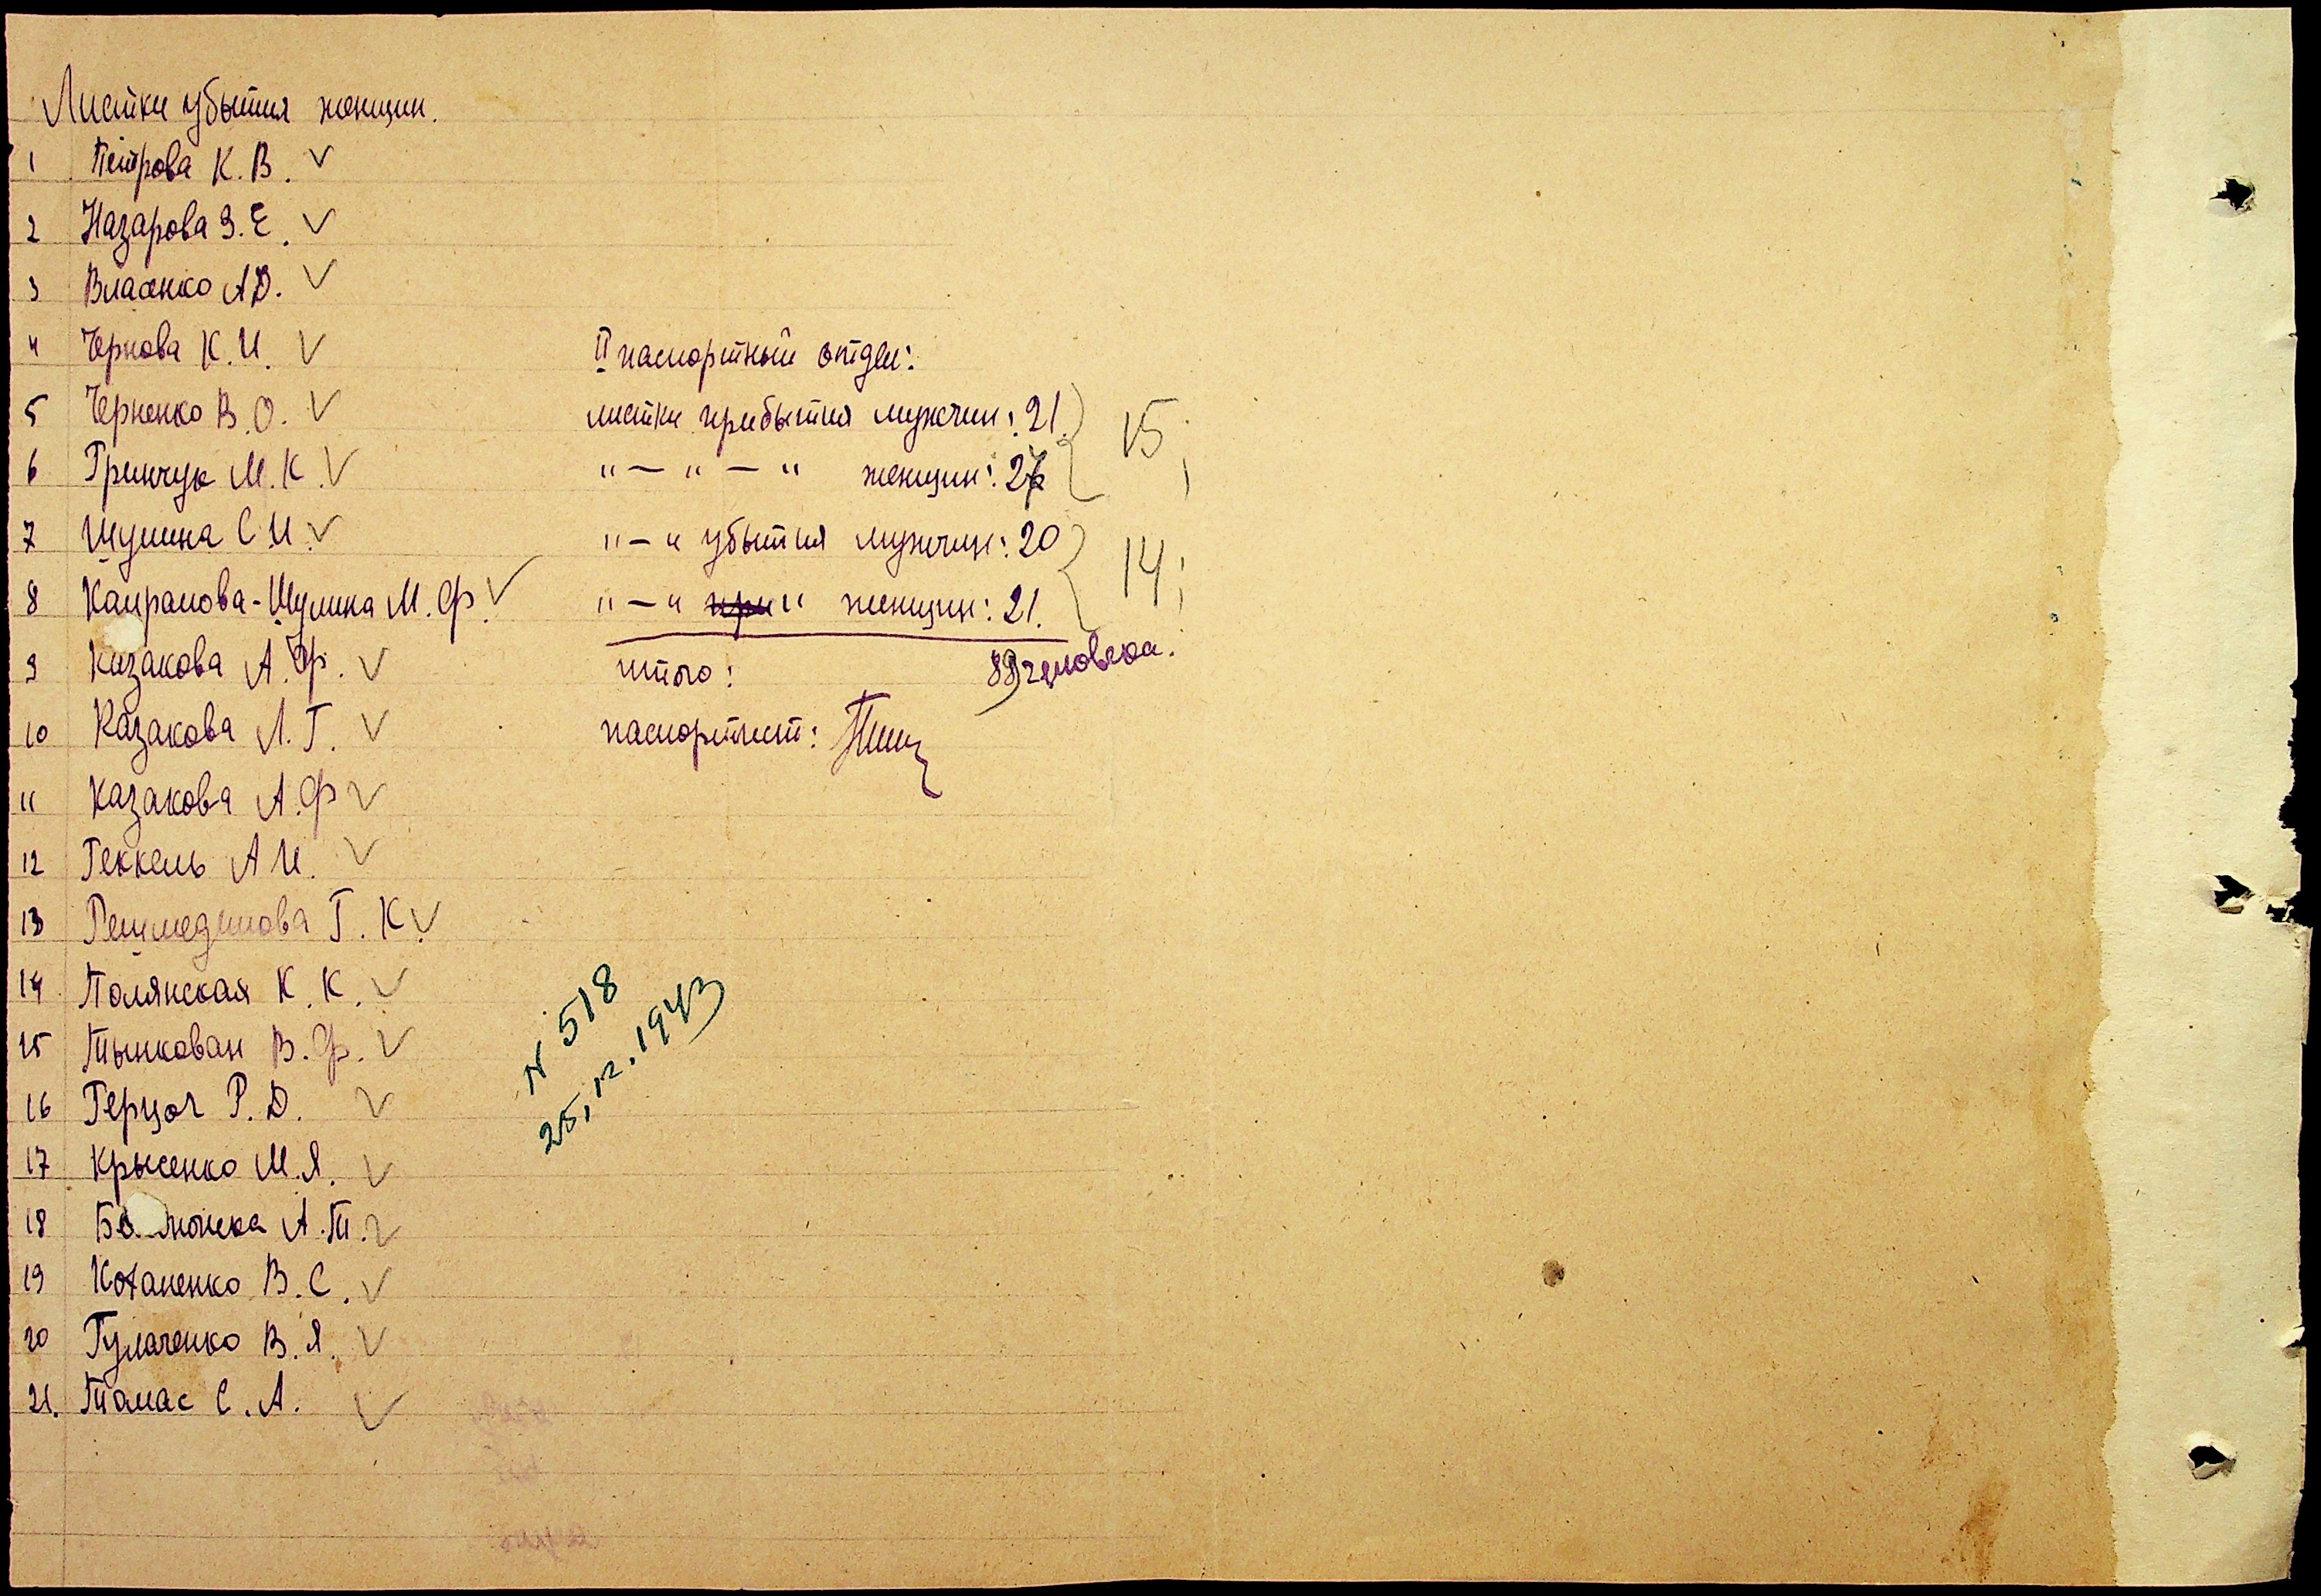 Листки убытия женщин.
1 Петрова К. В. ✓
2 Назарова З. Е. ✓
3 Власенко А.D. ✓
4 Чернова К. И. ✓
5 Черненко В. О. ✓
6 Гринчук М. К. ✓
7 Шумина С. И. ✓
8 Каирамова-Шумина М. Ф. ✓
9 Казакова А. Ф. ✓
10 Казакова Л. Г. ✓
11 Казакова А. Ф ✓
12 Геккель А И. ✓
13 Г. К. ✓
14 Полянская К. К. ✓
15 Тынкован В. Ф. ✓
16 Герцог Р. D. ✓
17 Крысенко М. Я. ✓
18 А. Т. ✓
19 Котаненко В. С. ✓
20 Гулаченко В. Я. ✓
21. Томас С. А. ✓
II паспортный отдел:
листки прибытия мужчин: 21.
"—"—" женщин: 27
"—" убытия мужчин: 20
"—" при" женщин: 21.
15;
14;
итого: 89 человека.
паспортист:
N 518
25, 12. 1943